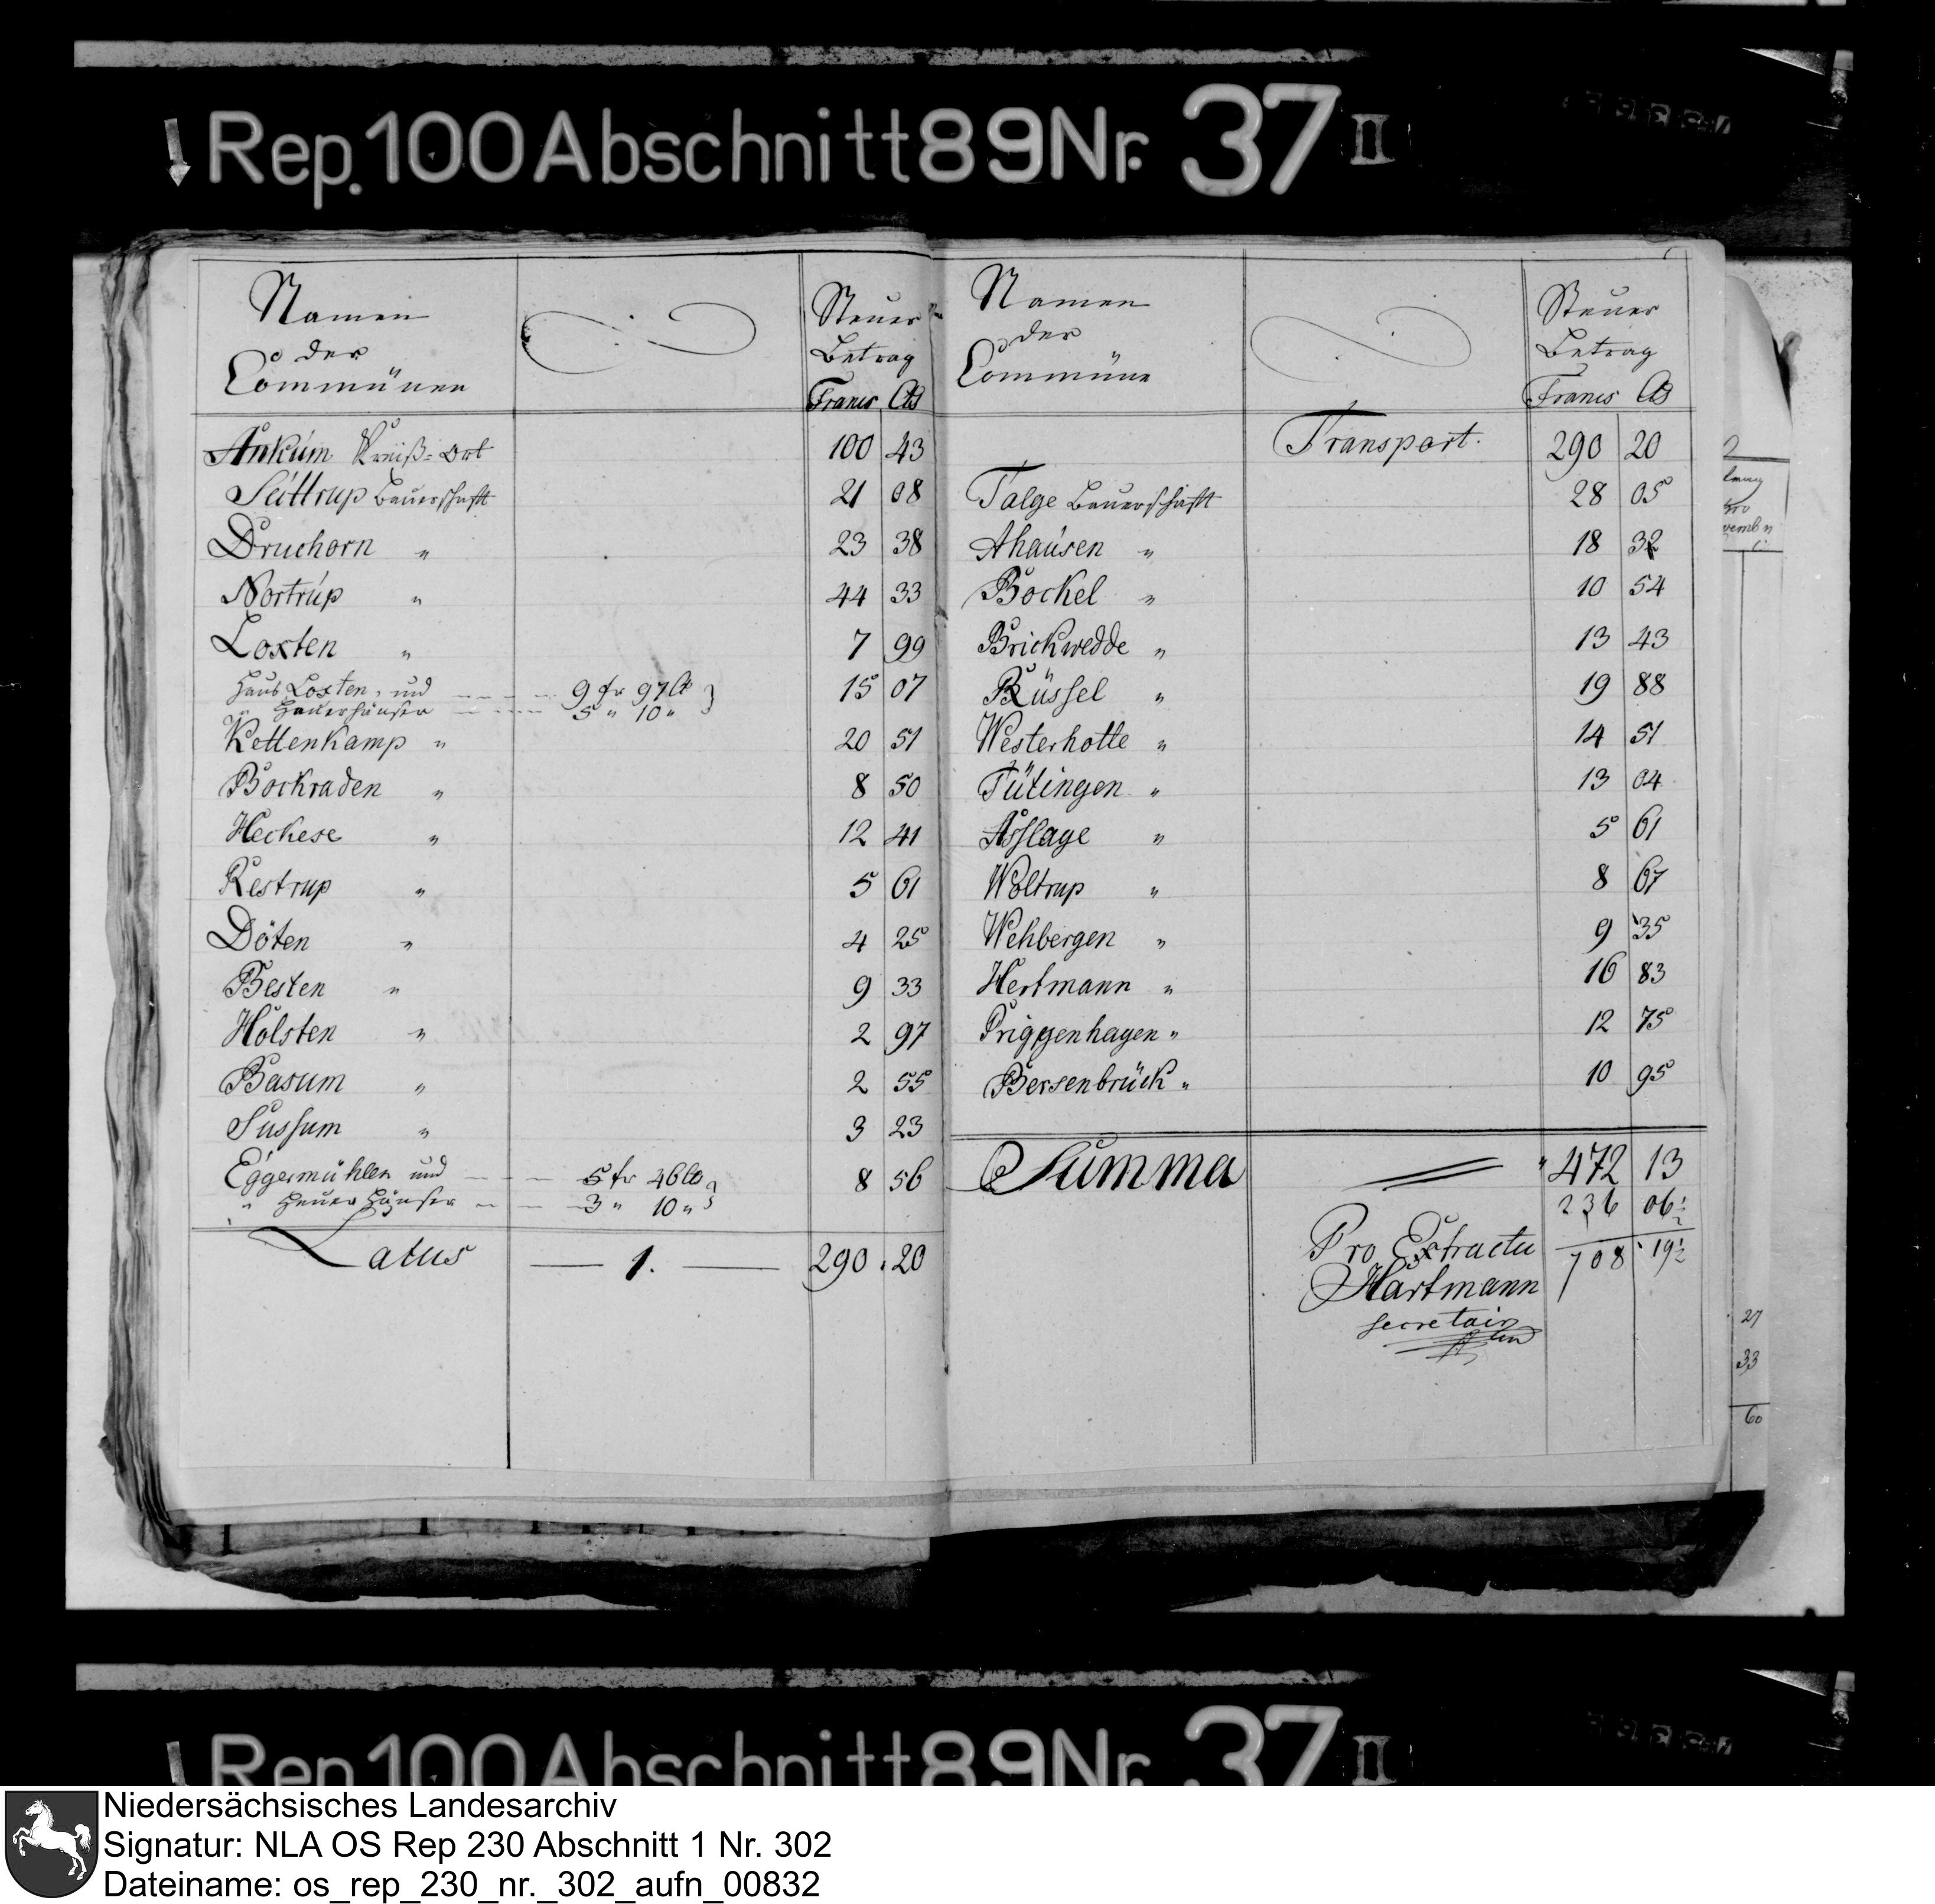 Rep. 100 Abschnitt 89 Nr. 37 II
Namen
der
Communen
Steuer
Betrag
Francs Cts
Ankum Kreiß-Ort 100 43
Suttrup Bauerschafft 21 08
Druchorn " 23 38
Nortrup " 44 33
Loxten " 7 99
Haus Loxten, und — — 9 fr 97 Ct
" Heuerhäuser — — 5 " 10 " } 15 07
Kettenkamp " 20 51
Bockraden " 8 50
Heckese " 12 41
Restrup " 5 61
Döten " 4 25
Besten " 9 33
Holsten " 2 97
Basum " 2 55
Sussum " 3 23
Eggermühlen und — — 5 fr 46 Ct
" Heuer Häuser — — 3 " 10 " } 8 56
Latus — 1. — 290 . 20
Namen
der
Commune
Steuer
Betrag
Francs Cts
Transport. 290 20
Talge Bauerschafft 28 05
Ahausen " 18 32
Bockel " 10 54
Brickwedde " 13 43
Rüssel " 19 88
Westerholte " 14 51
Tütingen " 13 04
Asslage " 5 61
Woltrup " 8 67
Wehbergen " 9 35
Hertmann " 16 83
Priggenhagen " 12 75
Bersenbrück " 10 95
Summa 472 13
236 06½
708 19½
Pro Extractu
Hartmann
secretair
27
33
60
Rep. 100 Abschnitt 89 Nr. 37 II
Niedersächsisches Landesarchiv
Signatur: NLA OS Rep 230 Abschnitt 1 Nr. 302
Dateiname: os_rep_230_nr._302_aufn_00832